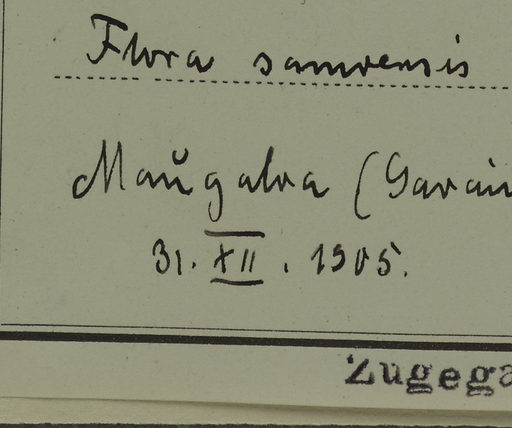 Flora samoensis
Maugaloa (Savaii
31. XII. 1905.
Zugega